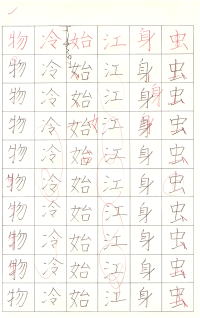 物 冷 始 江 身 虫
物 冷 始 江 身 虫
物 冷 始 江 身 虫
物 冷 始 江 身 虫
物 冷 始 江 身 虫
物 冷 始 江 身 虫
物 冷 始 江 身 虫
物 冷 始 江 身 虫
物 冷 始 江 身 虫
物 冷 始 江 身 虫